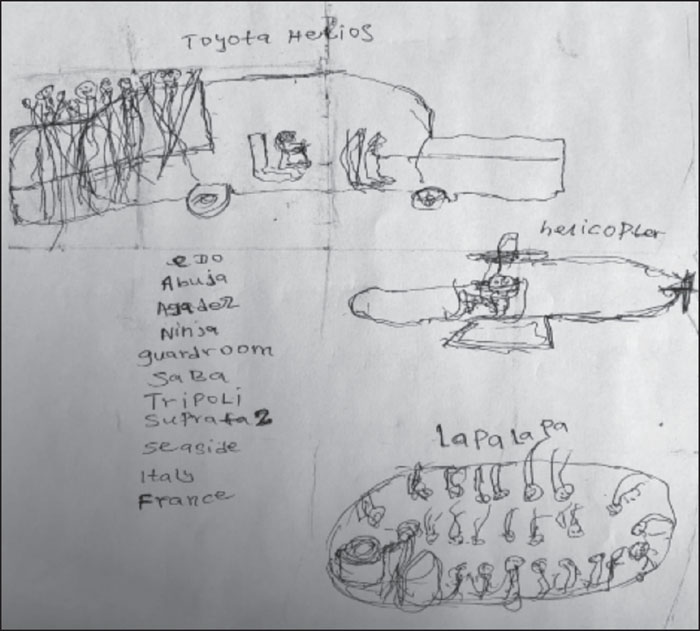 Toyota Helios
helicopter
eDO
Abuja
Agadez
Ninja
guardroom
SaBa
TripoLi
Suprata2
seaside
Italy
France
Lapalapa